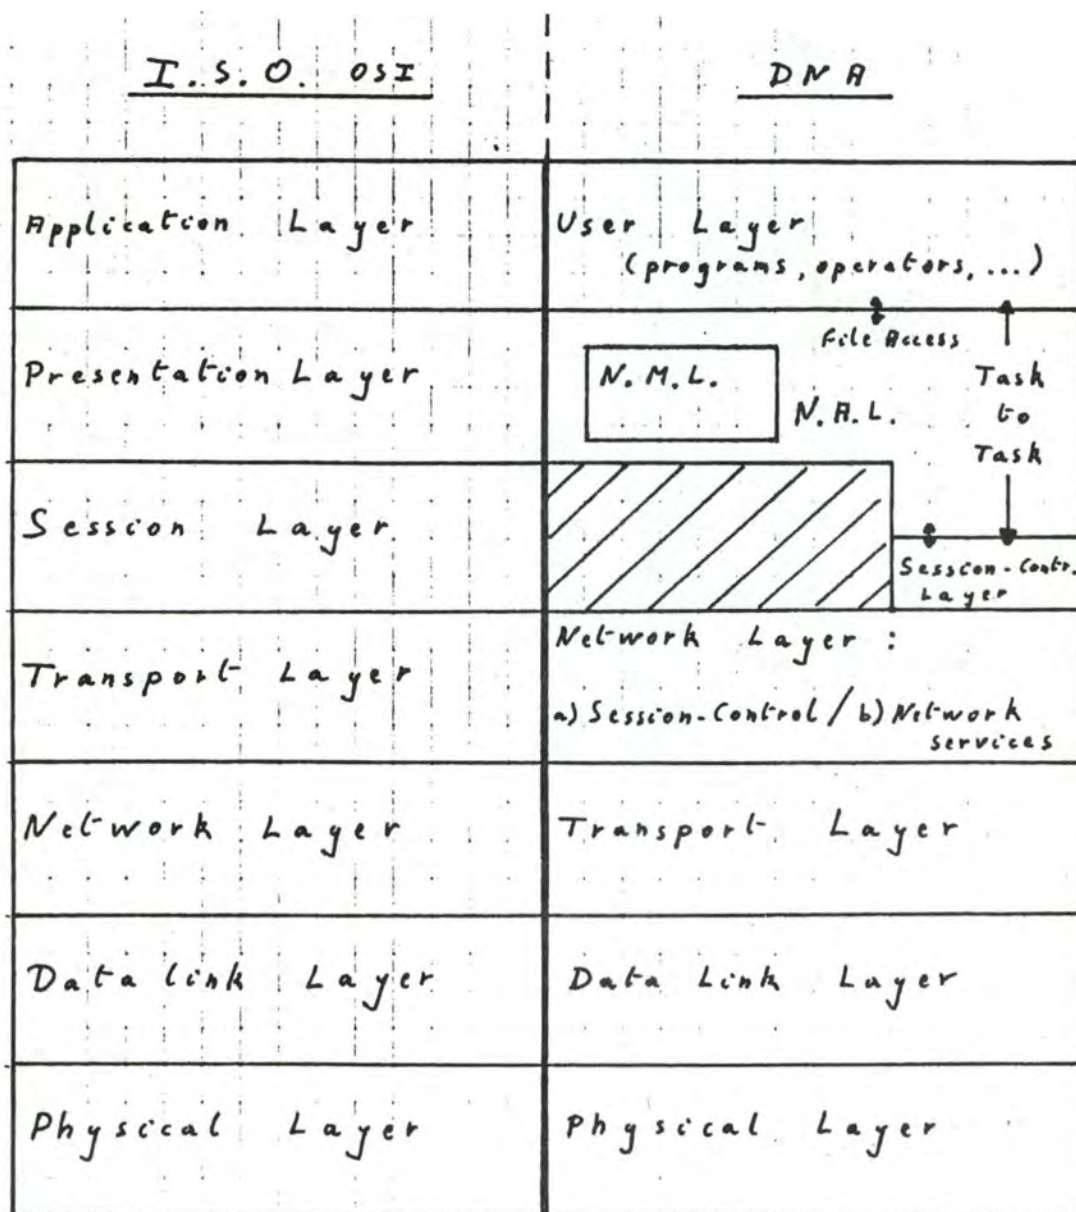 I.S.O. OSI
DNA
Application Layer
User Layer
(programs, operators, ...)
Presentation Layer
File Access
N.M.L.
N.A.L.
Task
to
Task
Session Layer
Session-Contr.
Layer
Transport Layer
Network Layer :
a) Session-Control / b) Network
services
Network Layer
Transport Layer
Data link Layer
Data Link Layer
Physical Layer
Physical Layer